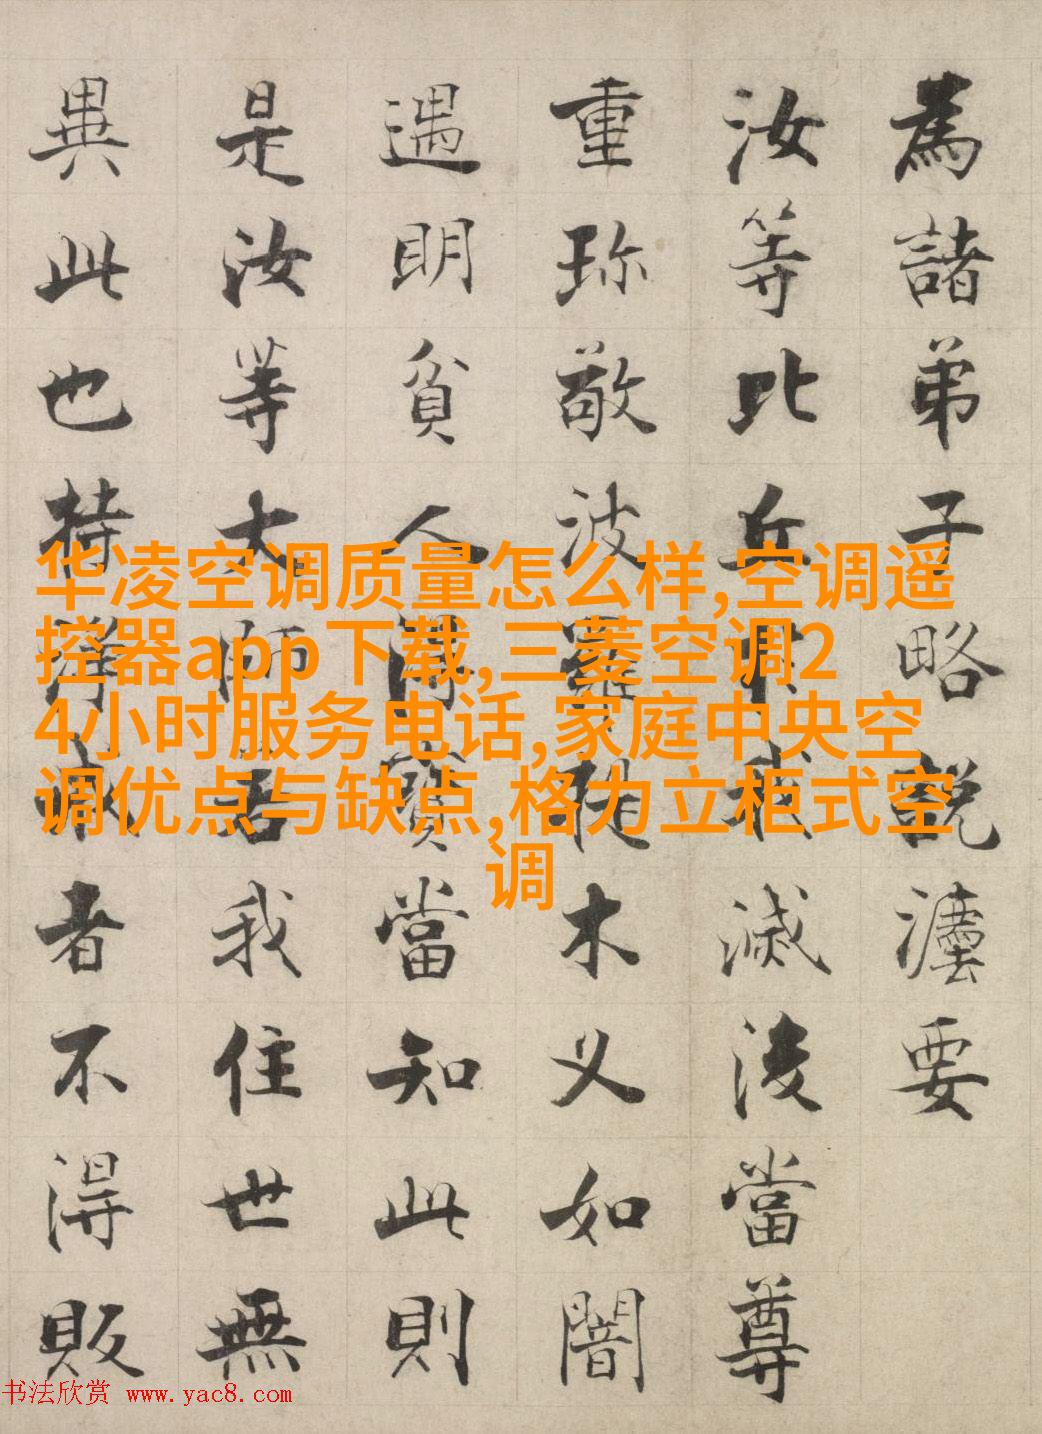 為諸弟子略說灋要
汝等比丘於我滅後當尊
重珍敬波羅提木叉如闇
遇明貧人得寶當知此則
是汝等大師若我住世無
異此也持淨戒者不得販
华凌空调质量怎么样,空调遥
控器app下载,三菱空调2
4小时服务电话,家庭中央空
调优点与缺点,格力立柜式空
调
书法欣赏 www.yac8.com